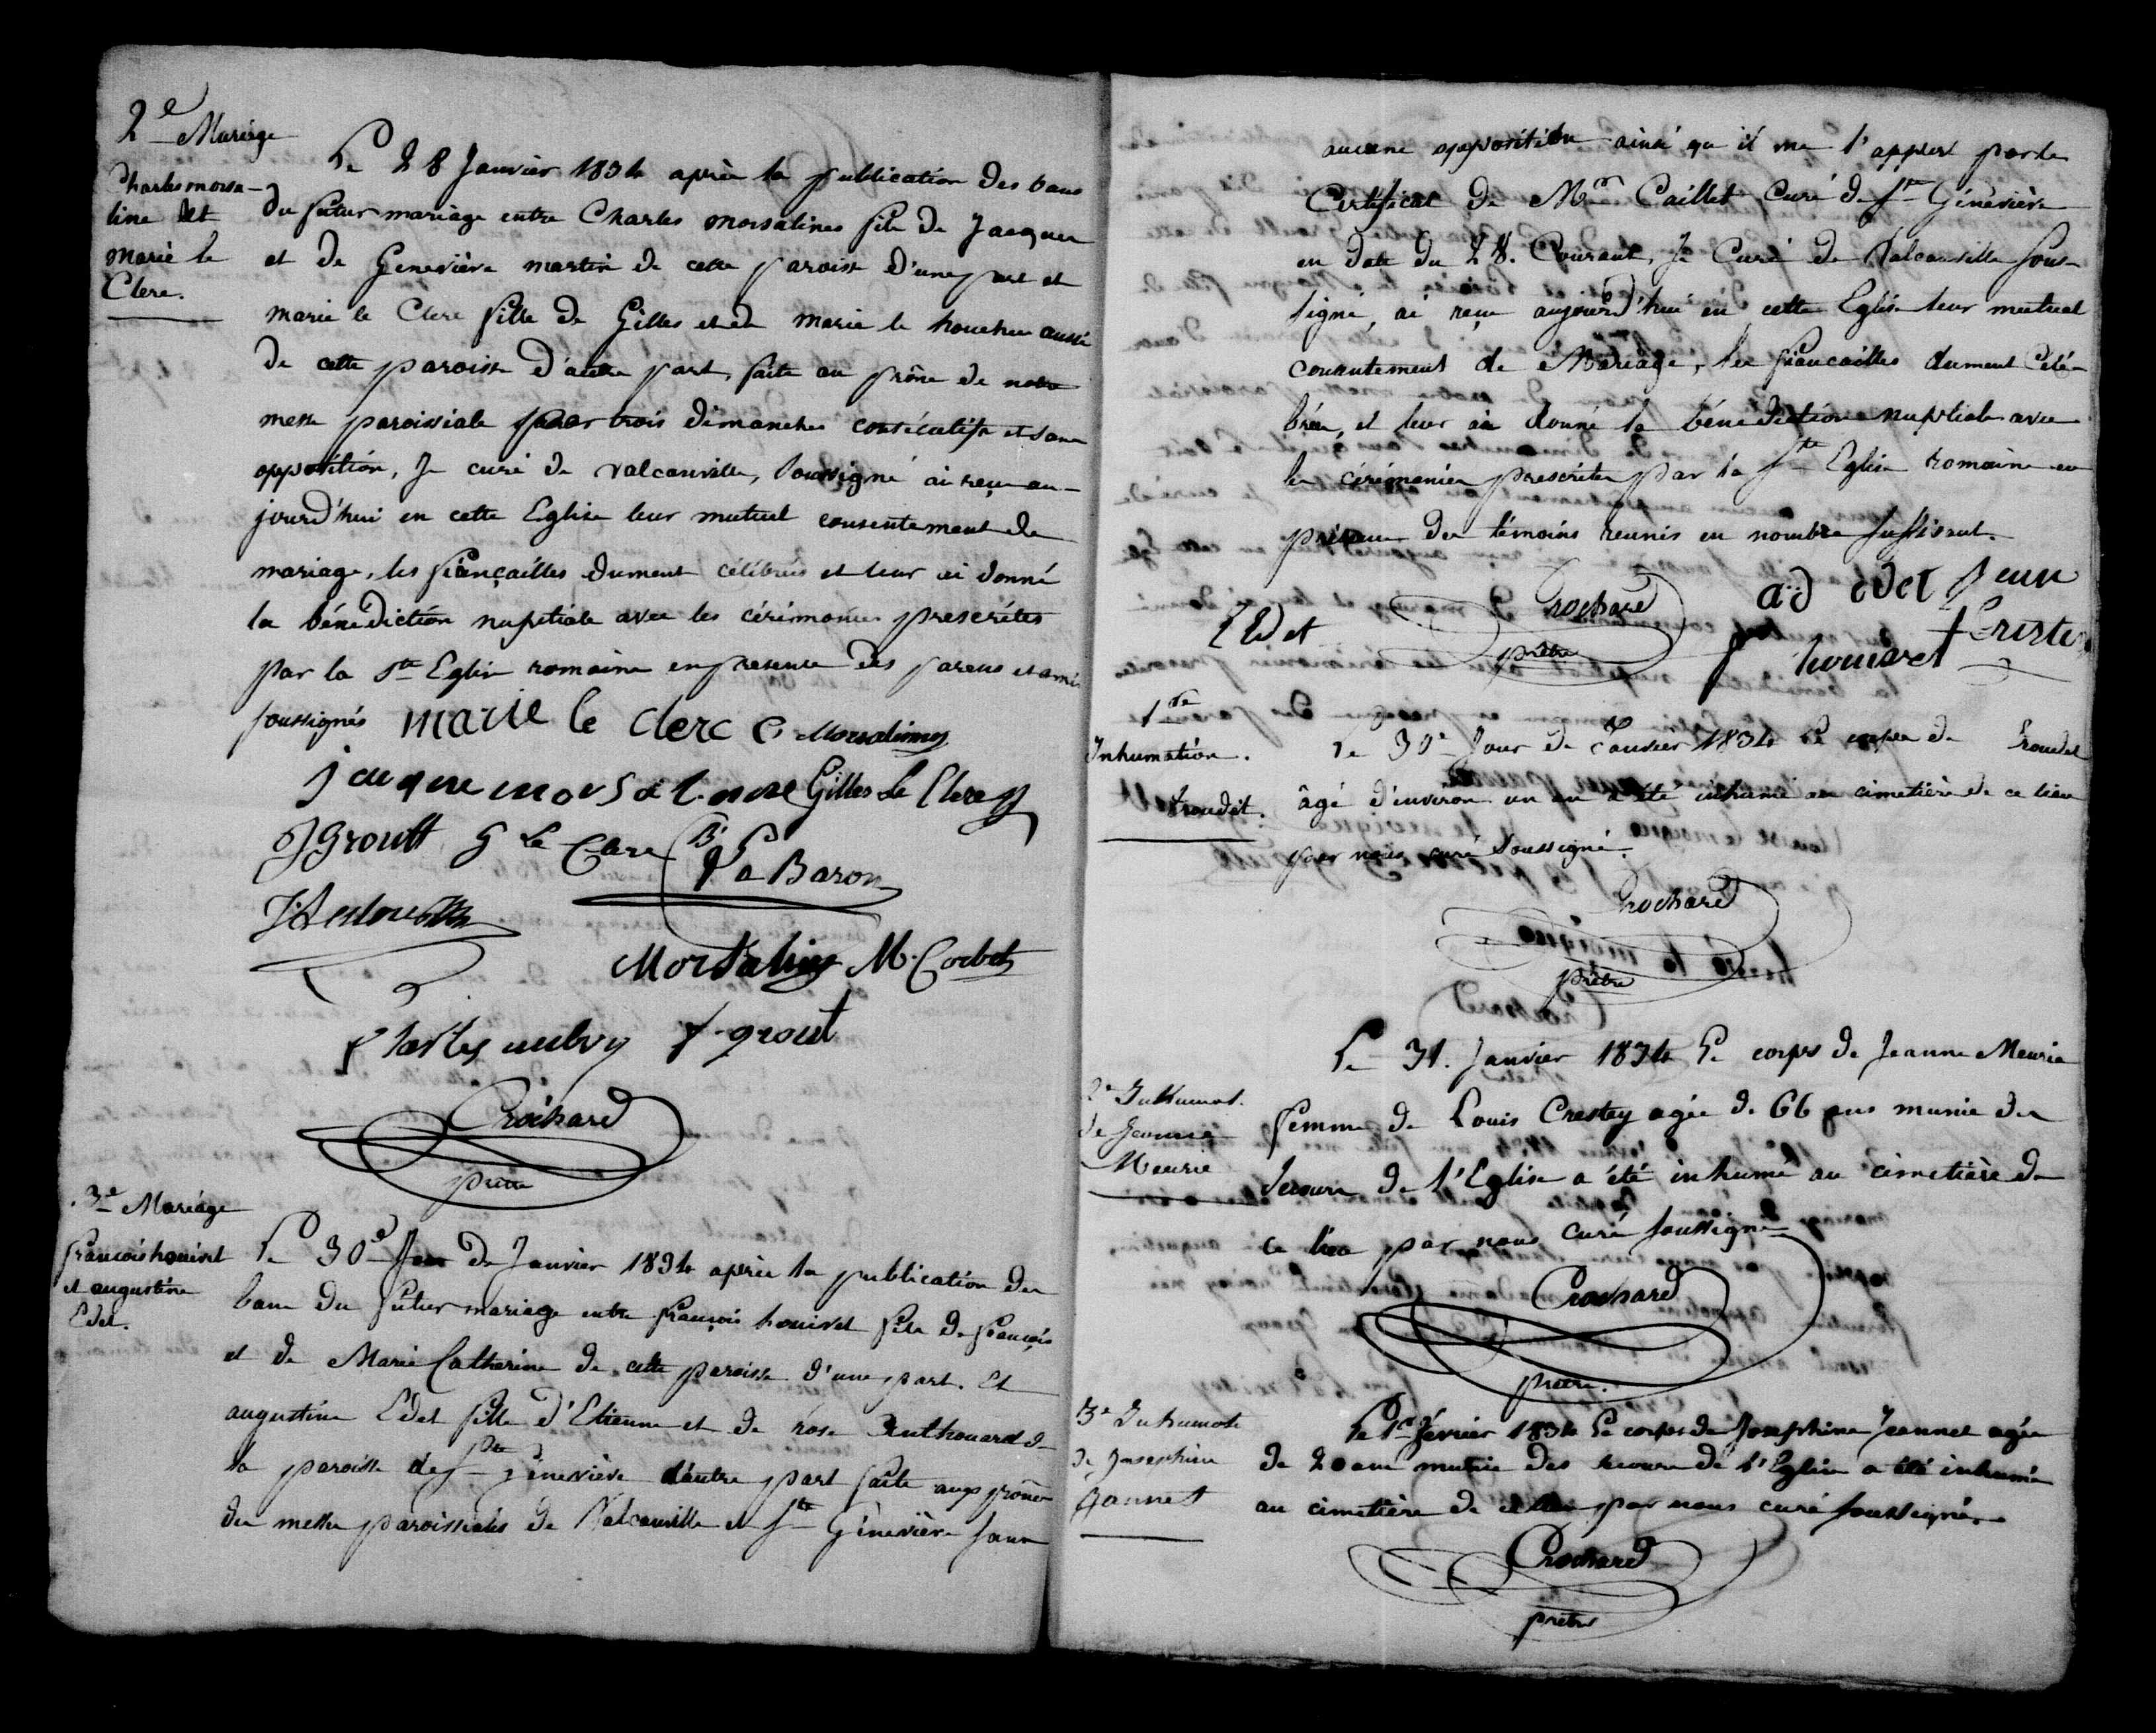 2e Mariage
Charles morsa-
line et
marie le
Clerc.
Le 28 Janvier 1834 après la publication des bans
du futur mariage entre Charles morsalines fils de Jacques
et de Geneviève martin de cette paroisse d'une part et
marie le Clerc fille de Gilles et de marie le aussi
de cette paroisse d'autre part, faite au prône de notre
messe paroissiale par trois dimanches consécutifs et sans
opposition, Je curé de valcanville, soussigné ai reçu au-
jourd'hui en cette Eglise leur mutuel consentement de
mariage, les fiançailles dument célébrées et leur ai donné
la bénédiction nuptiale avec les cérémonies prescrites
par la Ste Eglise romaine en presence des parens et amis
soussignés marie le clerc C Morsalines
jacque morsaline Gilles Le Clerc
J Groult G le Clerc
Le Baron
Morsalines M. Corbet
Charles aubry f. grout
Crochard
prêtre
3e Mariage
françois houivet
et augustine
Edet.
Le 30e Jour de Janvier 1834 après la publication des
bans du futur mariage entre françois houivet fils de françois
et de Marie Catherine de cette paroisse d'une part. Et
augustine Edet fille d'Etienne et de rose de
la paroisse de Ste Geneviève d'autre part faite aux prônes
des messes paroissiales de Valcanville et Ste Géneviève sans
aucune opposition ainsi qu'il me l'appert par le
Certificat de Mr Caillet Curé de Ste Géneviève
en date du 28. Courant, Je Curé de Valcanville sous-
signé, ai reçu aujourd'hui en cette Eglise leur mutuel
consentement de Mariage, les fiancailles dument Célé-
brées, et leur ai donné la bénédiction nuptiale avec
les cérémonies prescrites par la Ste Eglise romaine en
présence des témoins reunis en nombre suffisant.
Edet Crochard ad edet Jean
prêtre houivet
1re
Inhumation.
troudet.
Le 30e Jour de Janvier 1834 Le corps de troudet
âgé d'environ un an a été inhumé au cimetière de ce lieu
par nous curé soussigné.
Crochard
prêtre
2e Inhumat.
de Jeanne
Meurie
Le 31. Janvier 1834 Le corps de Jeanne Meurie
femme de Louis Crestey agée de 66 ans munie des
secours de l'Eglise a été inhumé au cimetière de
ce lieu par nous curé soussigné
Crochard
prêtre.
3e Inhumat
de Josephine
Jeannet
Le 1er février 1834 Le corps de Josephine Jeannet agée
de 20 ans munie des secours de l'Eglise a été inhumé
au cimetière de ce lieu par nous curé soussigné.
Crochard
prêtre